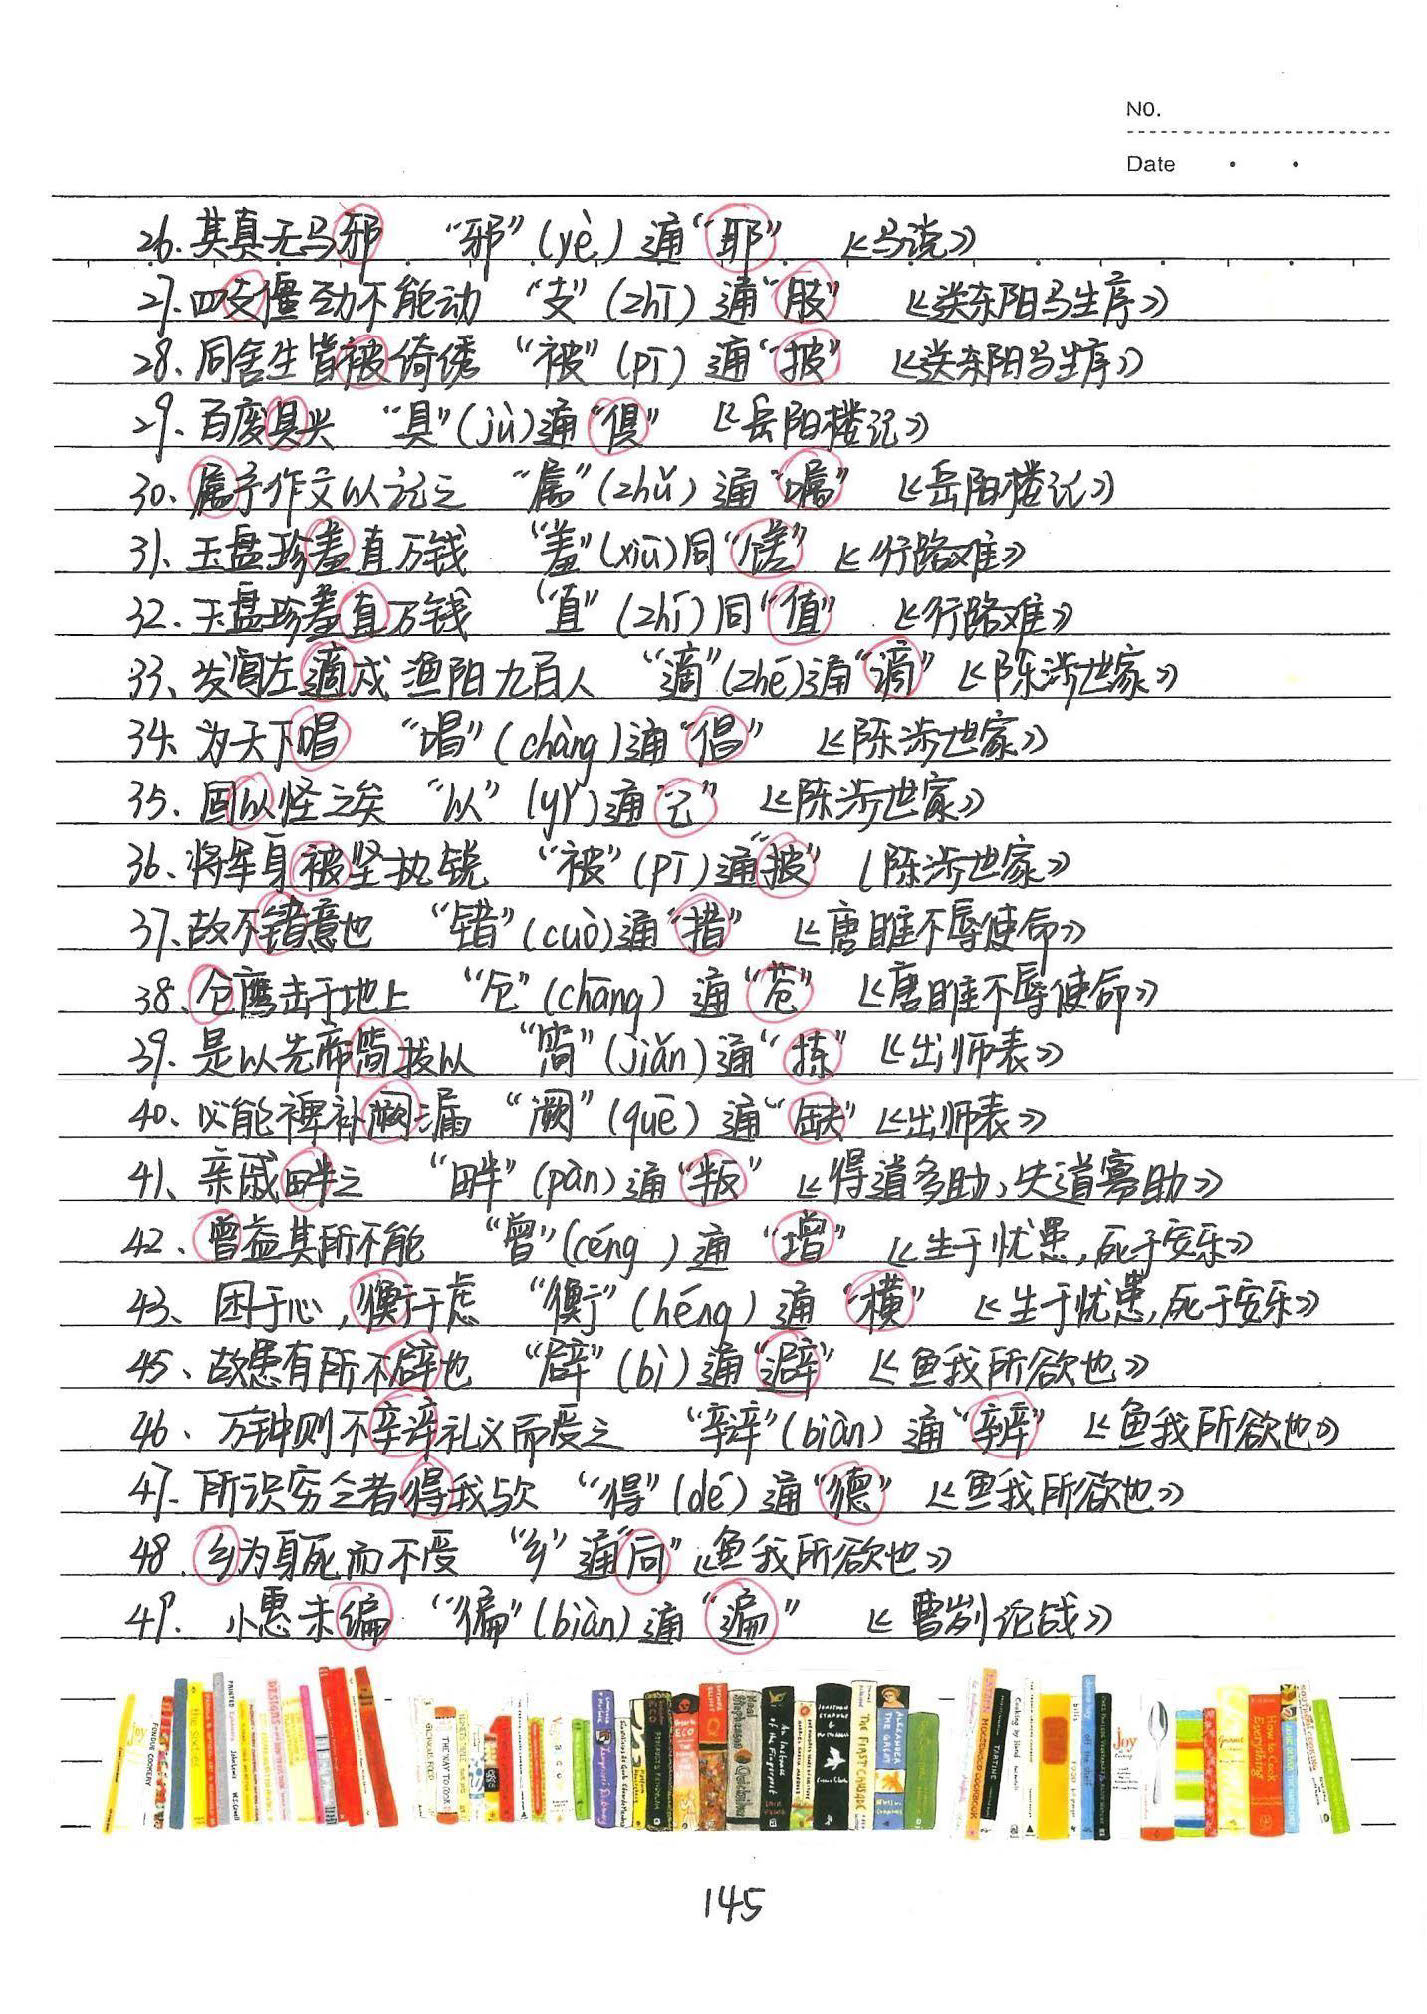 NO.
Date
26、其真无马邪 “邪”(yè)通“耶” 《马说》
27、四支僵劲不能动 “支”(zhī)通“肢” 《送东阳马生序》
28、同舍生皆被绮绣 “被”(pī)通“披” 《送东阳马生序》
29、百废具兴 “具”(jù)通“俱” 《岳阳楼记》
30、属予作文以记之 “属”(zhǔ)通“嘱” 《岳阳楼记》
31、玉盘珍羞直万钱 “羞”(xiū)同“馐” 《行路难》
32、玉盘珍羞直万钱 “直”(zhí)同“值” 《行路难》
33、发闾左適戍渔阳九百人 “適”(zhé)通“谪” 《陈涉世家》
34、为天下唱 “唱”(chàng)通“倡” 《陈涉世家》
35、固以怪之矣 “以”(yǐ)通“已” 《陈涉世家》
36、将军身被坚执锐 “被”(pī)通“披” 《陈涉世家》
37、故不错意也 “错”(cuò)通“措” 《唐雎不辱使命》
38、仓鹰击于地上 “仓”(chāng)通“苍” 《唐雎不辱使命》
39、是以先帝简拔以 “简”(jiǎn)通“拣” 《出师表》
40、必能裨补阙漏 “阙”(quē)通“缺” 《出师表》
41、亲戚畔之 “畔”(pàn)通“叛” 《得道多助,失道寡助》
42、曾益其所不能 “曾”(céng)通“增” 《生于忧患,死于安乐》
43、困于心,衡于虑 “衡”(héng)通“横” 《生于忧患,死于安乐》
45、故患有所不辟也 “辟”(bì)通“避” 《鱼我所欲也》
46、万钟则不辩礼义而受之 “辩”(biàn)通“辨” 《鱼我所欲也》
47、所识穷乏者得我与欤 “得”(dé)通“德” 《鱼我所欲也》
48、乡为身死而不受 “乡”通“向” 《鱼我所欲也》
49、小惠未徧 “徧”(biàn)通“遍” 《曹刿论战》
145